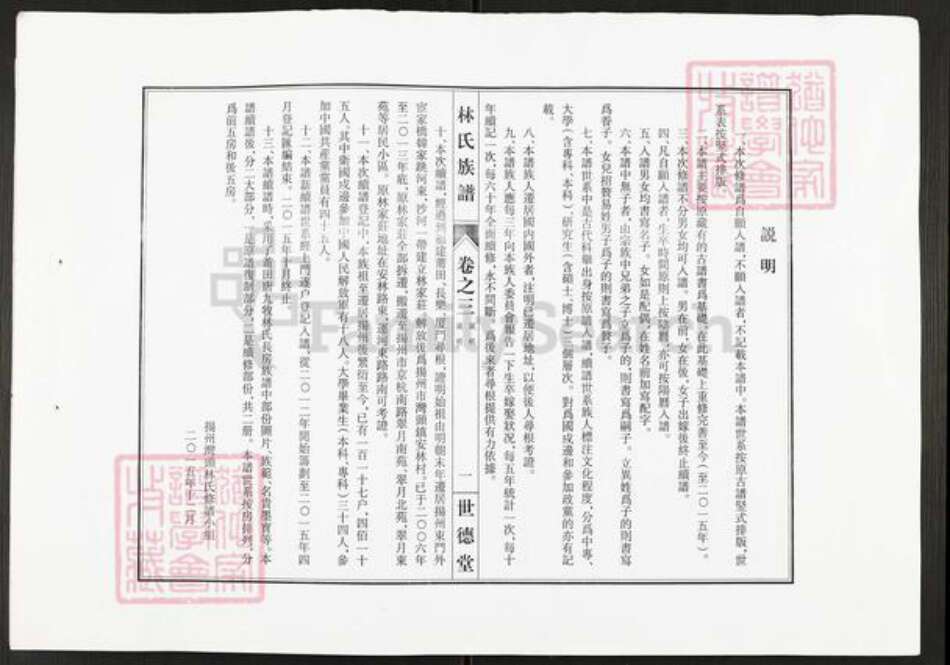 説明
一、本次修譜爲自願入譜，不願入譜者，不記載本譜中。本譜世系按原古譜竪式排版，世
系表按竪式排版。
二、本譜主要按原藏有的古譜書爲基礎，在此基礎上重修完善至今（至二〇一五年）。
三、本次修譜不分男女均可入譜，男在前，女在後，女子出嫁後終止續譜。
四、凡自願入譜者，生卒時間原則上按陰曆，亦可按陽曆入譜。
五、入譜男女均書寫名子。女如是配偶，在姓名前加寫配字。
六、本譜中無子者，由宗族中兄弟之子立爲子的，則書寫爲嗣子。立異姓爲子的則書寫
爲養子。女兒招贅易姓男子爲子的則書寫爲贅子。
七、本譜世系中是古代科舉出身按原制入譜，續譜世系族人標注文化程度，分爲中專、
大學（含專科、本科）、研究生（含碩士、博士）三個層次。對爲國戍邊和參加政黨的亦有記
載。
八、本譜族人遷居國内國外者，注明已遷居地址，以便後人尋根考證。
九、本譜族人應每三年向本族人委員會報告一下生卒嫁娶狀况，每五年統計一次，每十
年續記一次，每六十年全面續修，永不間斷。爲後來者尋根提供有力依據。
林氏族譜
卷之三
一
世德堂
十、本次續譜，經過到福建莆田、長樂、厦門尋根，證明始祖由明朝末年遷居揚州東門外
宦家橋韓家跳河東，沙河一帶建立林家莊，解放後爲揚州市灣頭鎮安林村。已于二〇〇六年
至二〇一三年底，原林家莊全部拆遷，搬遷至揚州市京杭南路翠月南苑、翠月北苑、翠月東
苑等居民小區。原林家莊地址在安林路東，運河東路路南可考證。
十一、本次續譜登記中，本族祖至遷居揚州後繁衍至今，已有一百一十七户，四佰一十
五人，其中衛國戍邊參加中國人民解放軍有十八人。大學畢業生（本科、專科）三十四人、參
加中國共産黨黨員有四十五人。
十二、本譜新續譜世系經上門逐户登記入譜，從二〇一二年開始籌劃至二〇一五年四
月登記匯編結束。二〇一五年十月終止。
十三、本譜續譜時，采用了莆田唐九牧林氏長房族譜中部份圖片、族範、名賢墨寶等。本
譜續譜後，分二大部分，一是原譜復制部分，二是續修部份，共二册。本譜世系按房排列，分
爲前五房和後五房。
揚州灣頭林氏修譜小組
二〇一五年十二月
FamilySearch